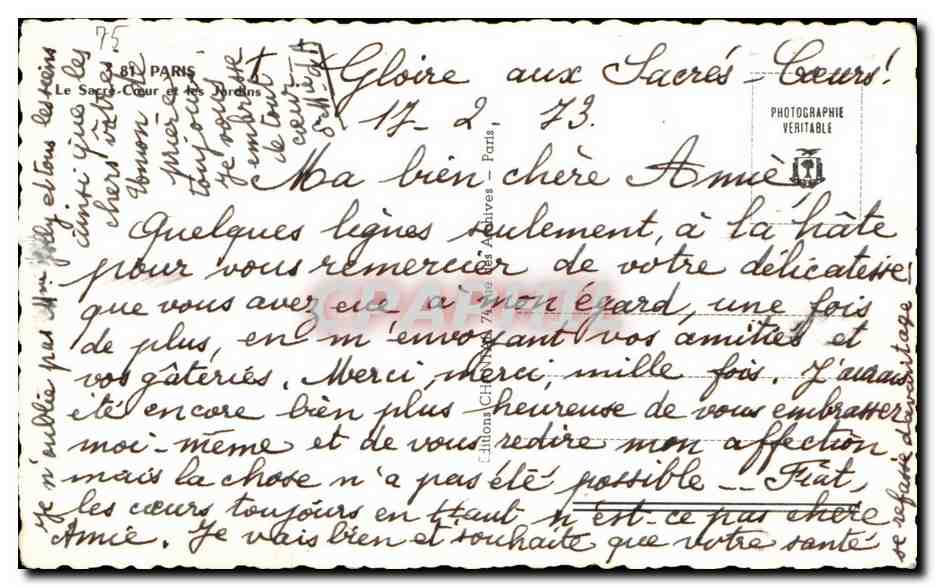 75
81 PARIS
Le Sacré-Cœur et les Jardins
PHOTOGRAPHIE
VÉRITABLE
Editions CHANTAL, 74, rue des Archives - Paris
CPAPHIL
† Gloire aux Sacrés-Cœurs!
17-2-73.
Ma bien chère Amie
Quelques lignes seulement, à la hâte
pour vous remercier de votre délicatesse
que vous avez eue à mon égard, une fois
de plus, en m'envoyant vos amitiés et
vos gâteries. Merci, merci, mille fois. J'aurais
été encore bien plus heureuse de vous embrasser
moi-même et de vous redire mon affection
mais la chose n'a pas été possible -- Fiat,
les cœurs toujours en Haut n'est-ce pas chère
Amie. Je vais bien et souhaite que votre santé
se refasse davantage
Je n'oublie pas Mme et tous les siens
ainsi que les
chers vôtres
Union de
prière
toujours
Je vous
embrasse
de tout
cœur